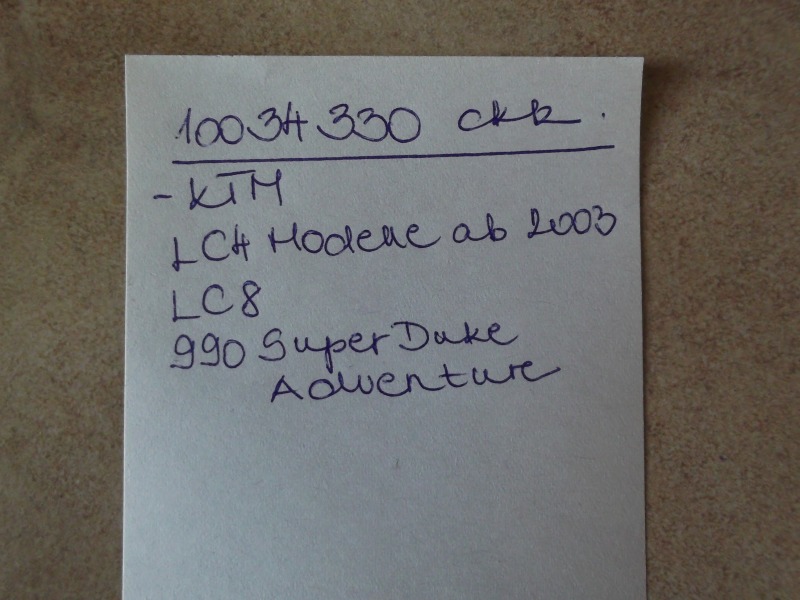 10034330 скк.
- KTM
LC4 Modelle ab 2003
LC8
990 SuperDuke
Adventure